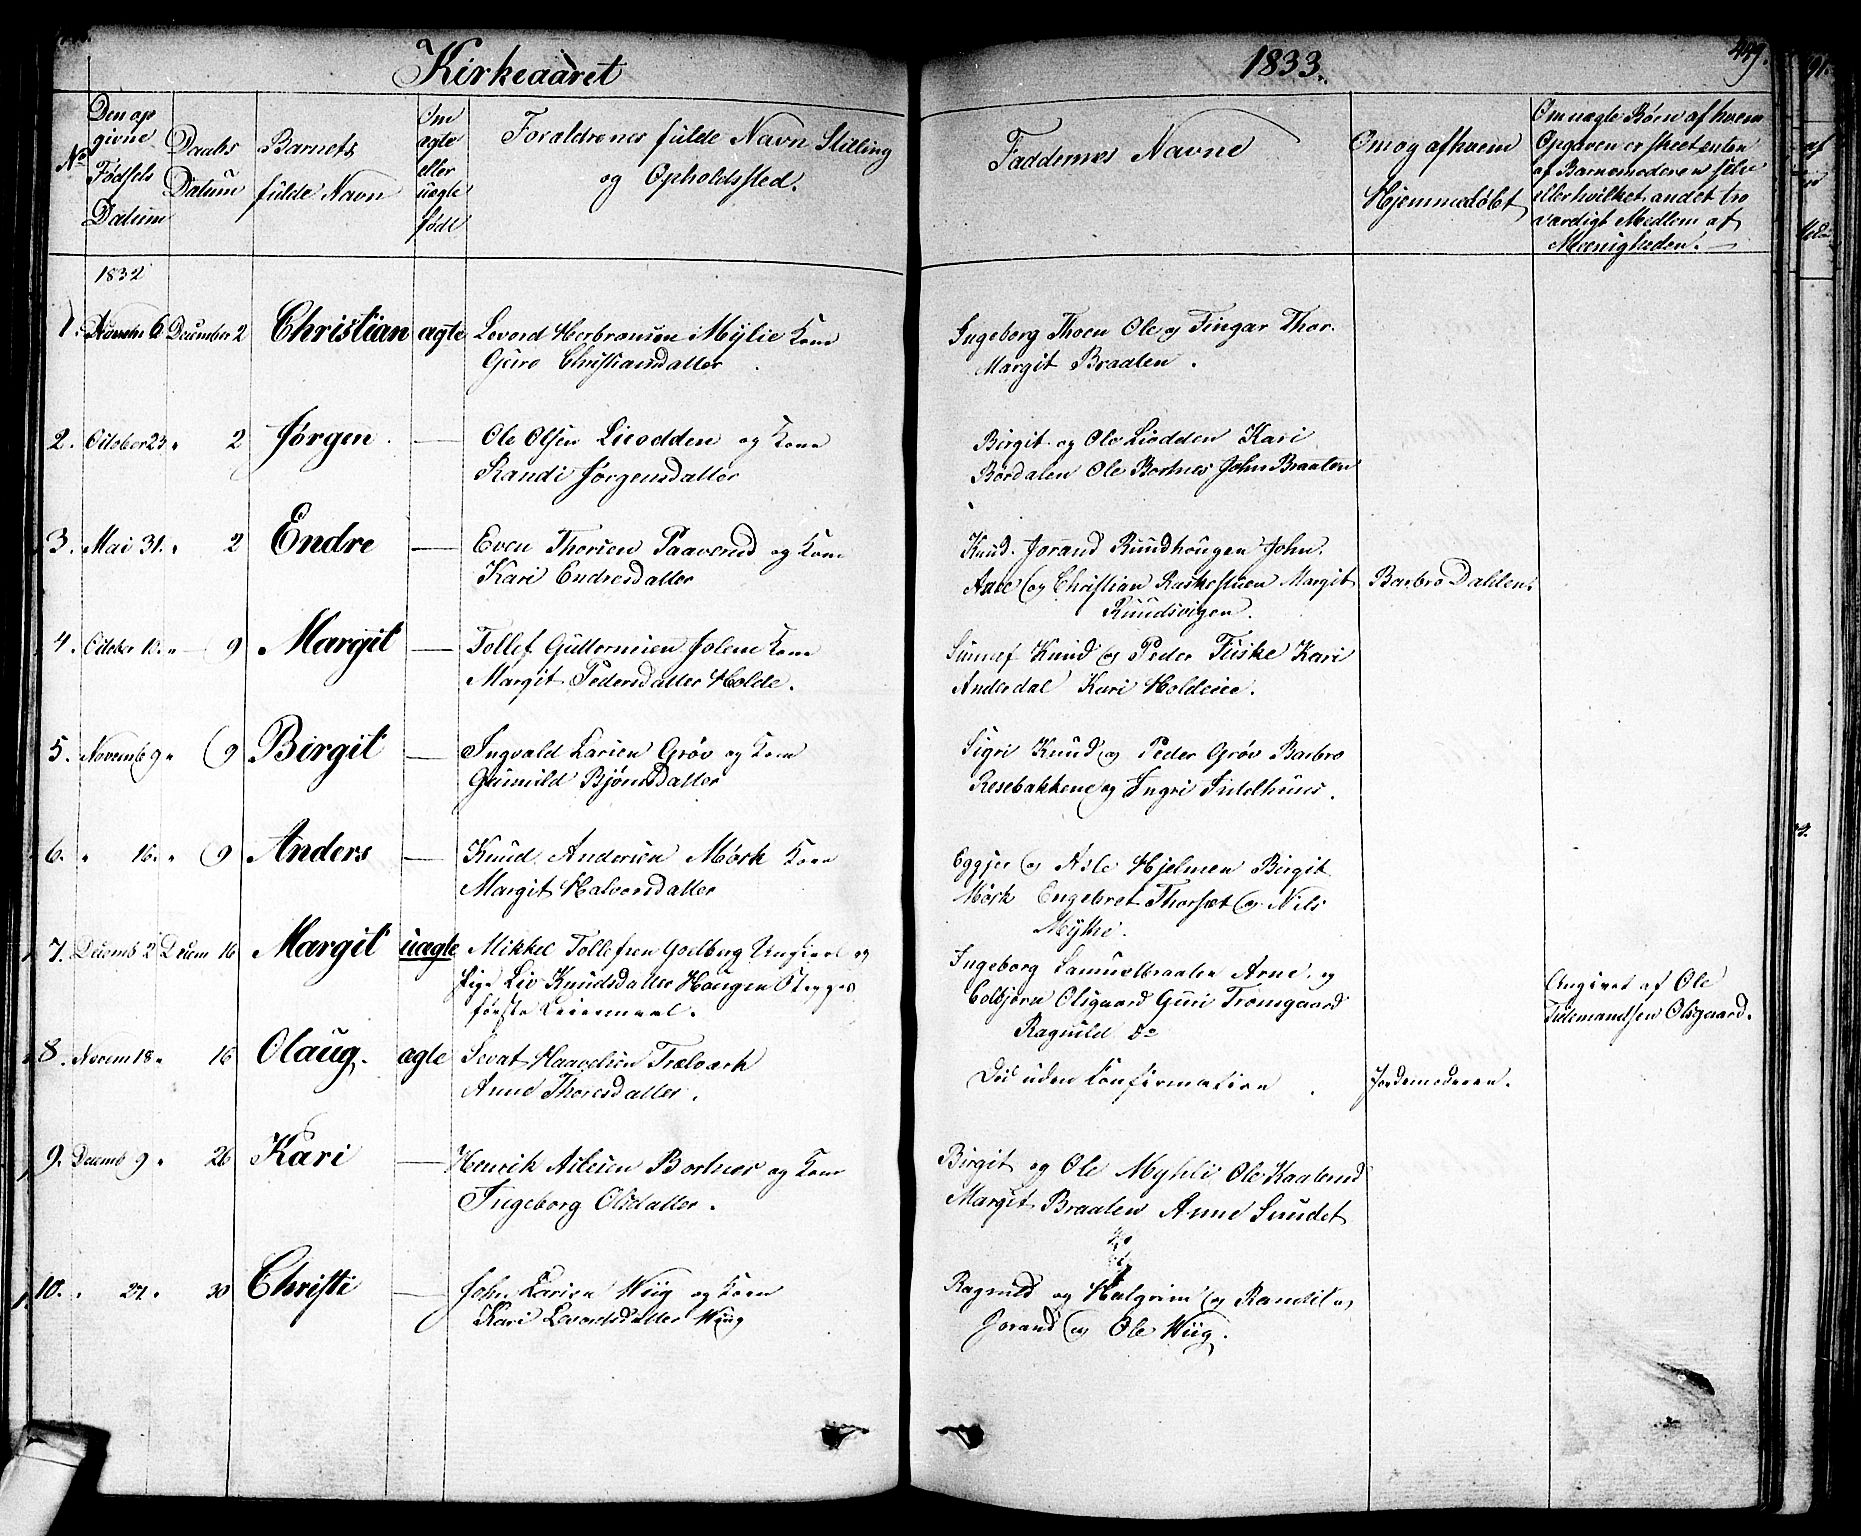 Kirkeaaret 1833. 449.
No
Den op
givne
Fødsels
Datum
Daabs
Datum
Barnets
fulde Navn
Om
ægte
eller
uægte
født
Forældrenes fulde Navn Stilling
og Opholdssted.
Faddernes Navne
Om og af hvem
Hjemmedøbt
Om uægte Børn af hvem
Opgaven er skeet enten
af Barnemoderen selv
eller hvilket andet tro
værdigt Medlem af
Menigheden.
1832
1. Novem 6 December 2 Christian ægte Levord Herbransen Mÿlie Kone
Guro Christiansdatter
Ingeborg Thoen Ole og Fingar Thor.
Margit Braaten.
2. October 23 " 2 Jørgen. — Ole Olsen Lieodden og Kone
Randi Jørgensdatter
Birgit og Ole Liodden Kari
Bordalen Ole Bortnes John Braaten
3. Mai 31. " 2 Endre — Even Thorsen Paaverud og Kone
Kari Endresdatter
Knud. Jorand Ruudhougen John.
Anne og Christian Raskestuen Margit
Ruudsvigen.
Barbro Dahlen.
4. October 12. " 9 Margit — Tollef Guttormsen Kone
Margit Pedersdatter Holde.
Knud og Peder Fuske Kari
Anderdal Kari Holdeie.
5. Novemb 9 " 9 Birgit — Ingvald Larsen Grøv og Kone
Gunnild Bjørnsdatter
Sigri Knud og Peder Grøv Barbro
Resebakkene og Ingri
6. " 16. " 9 Anders — Knud Andersen Mørk Kone
Margit Halvorsdatter
Eggjer og Asle Hjelmen Birgit
Mørk Engebret Thorset og Nils
Mÿhle.
7. Decemb 2 Decem 16 Margit uægte Mikkel Tollefsen Goelberg Ungkarl og
Pige Liv Knudsdatter Hougen
første Leiermaal.
Ingeborg Samuelbraaten Arne og
Colbjørn Olsgaard Guri Tromsgaard
Ragnild Do
Angivet af Ole
Tidemandsen Olsgaard.
8. Novem 18 " 16 Olaug. ægte Sevat Haavelsen Trælvark
Anne Thoresdatter.
Død uden Confirmation
Jordemoderen.
9. Decemb 9 " 26 Kari — Henrik Aslesen Bortnes og Kone
Ingeborg Olsdatter.
Birgit og Ole Myhle Ole Kaalrud
Margit Braaten Anne Sundet
10. " 27. " 30 Christi — John Larsen Wiig og Kone
Kari Levordsdatter Wiig
Ragnild og Halgrim og Randi
Jorand og Ole Wiig.